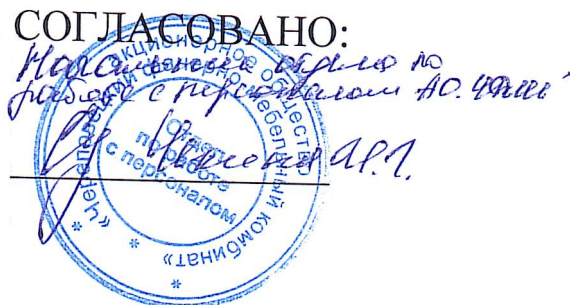 СОГЛАСОВАНО:
Начальник отдела по
работе с персоналом АО "ЧФМК"
Акционерное общество
«Череповецкий фанерно-мебельный комбинат»
Отдел
по работе
с персоналом